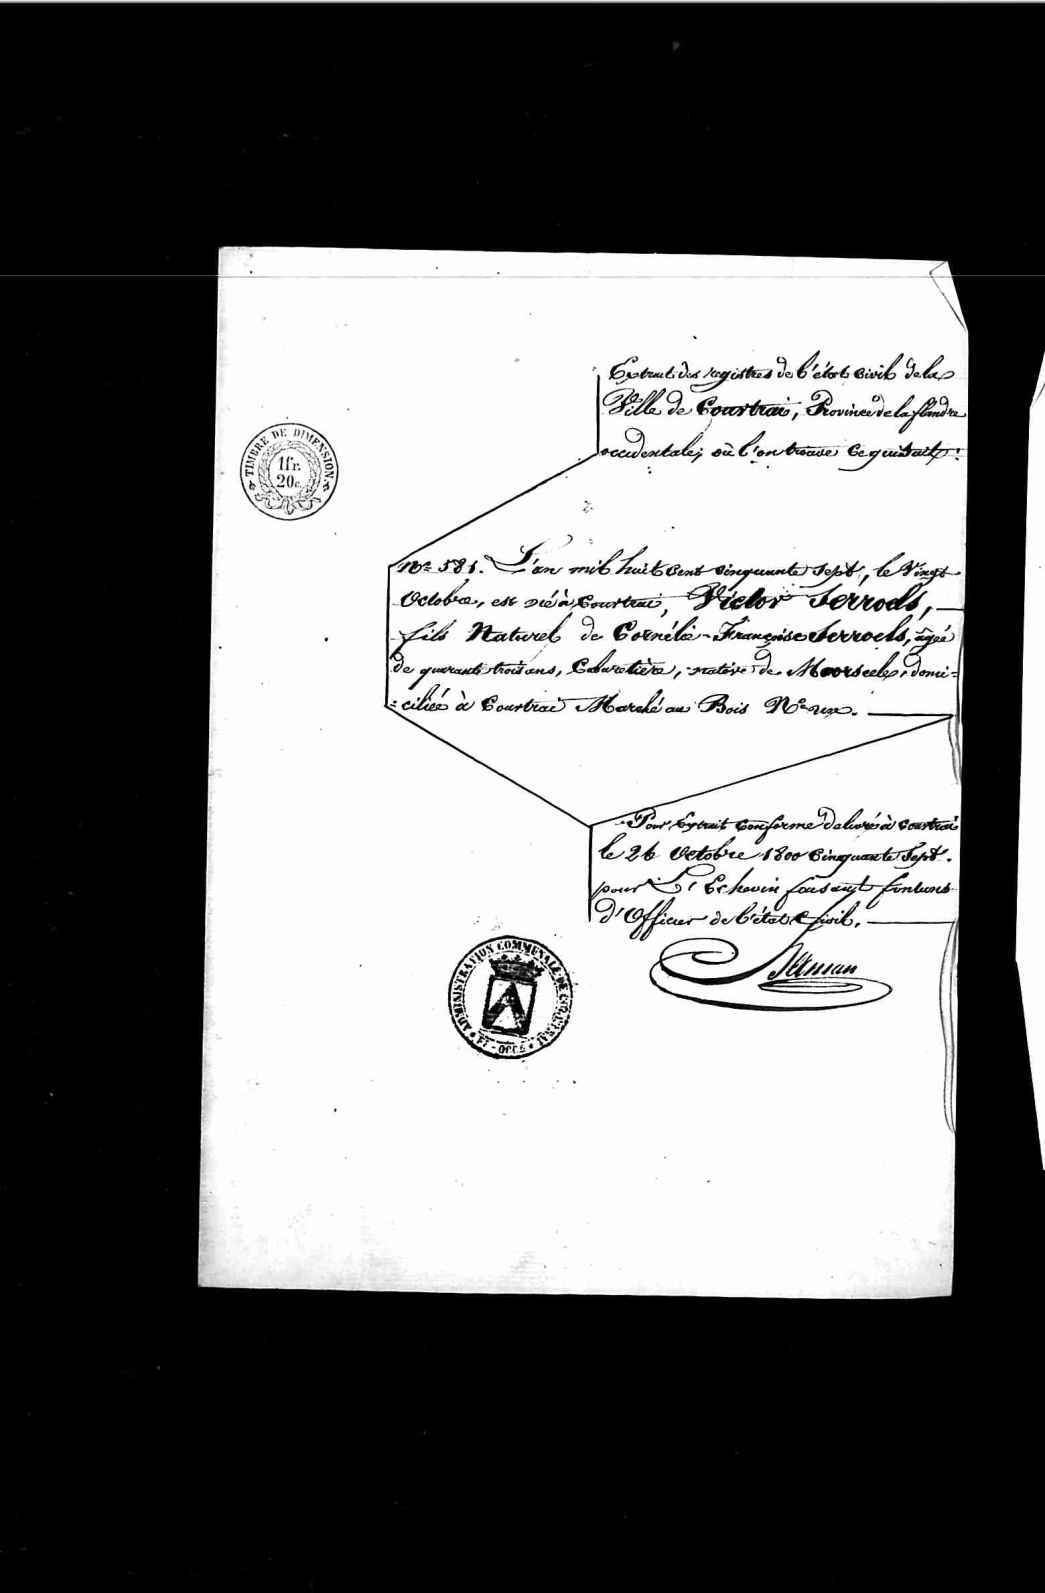 Extrait des registres de l'état civil de la
Ville de Courtrai, Province de la flandre
occidentale, où l'on trouve ce qui suit:
TIMBRE DE DIMENSION
1fr.
20c.
No 581. L'an mil huit cent cinquante sept, le Vingt
Octobre, est né à Courtrai, Victor Serroels,
fils Naturel de Cornélie-Françoise Serroels, âgée
de quarante trois ans, Cabaretière, native de Moorseele, domi-
-ciliée à Courtrai Marché au Bois No un.
Pour Extrait conforme délivré à Courtrai
le 26 Octobre 1800 Cinquante Sept.
pour L'Echevin faisant fonctions
d'Officier de l'état Civil.
ADMINISTRATION COMMUNALE DE COURTRAI